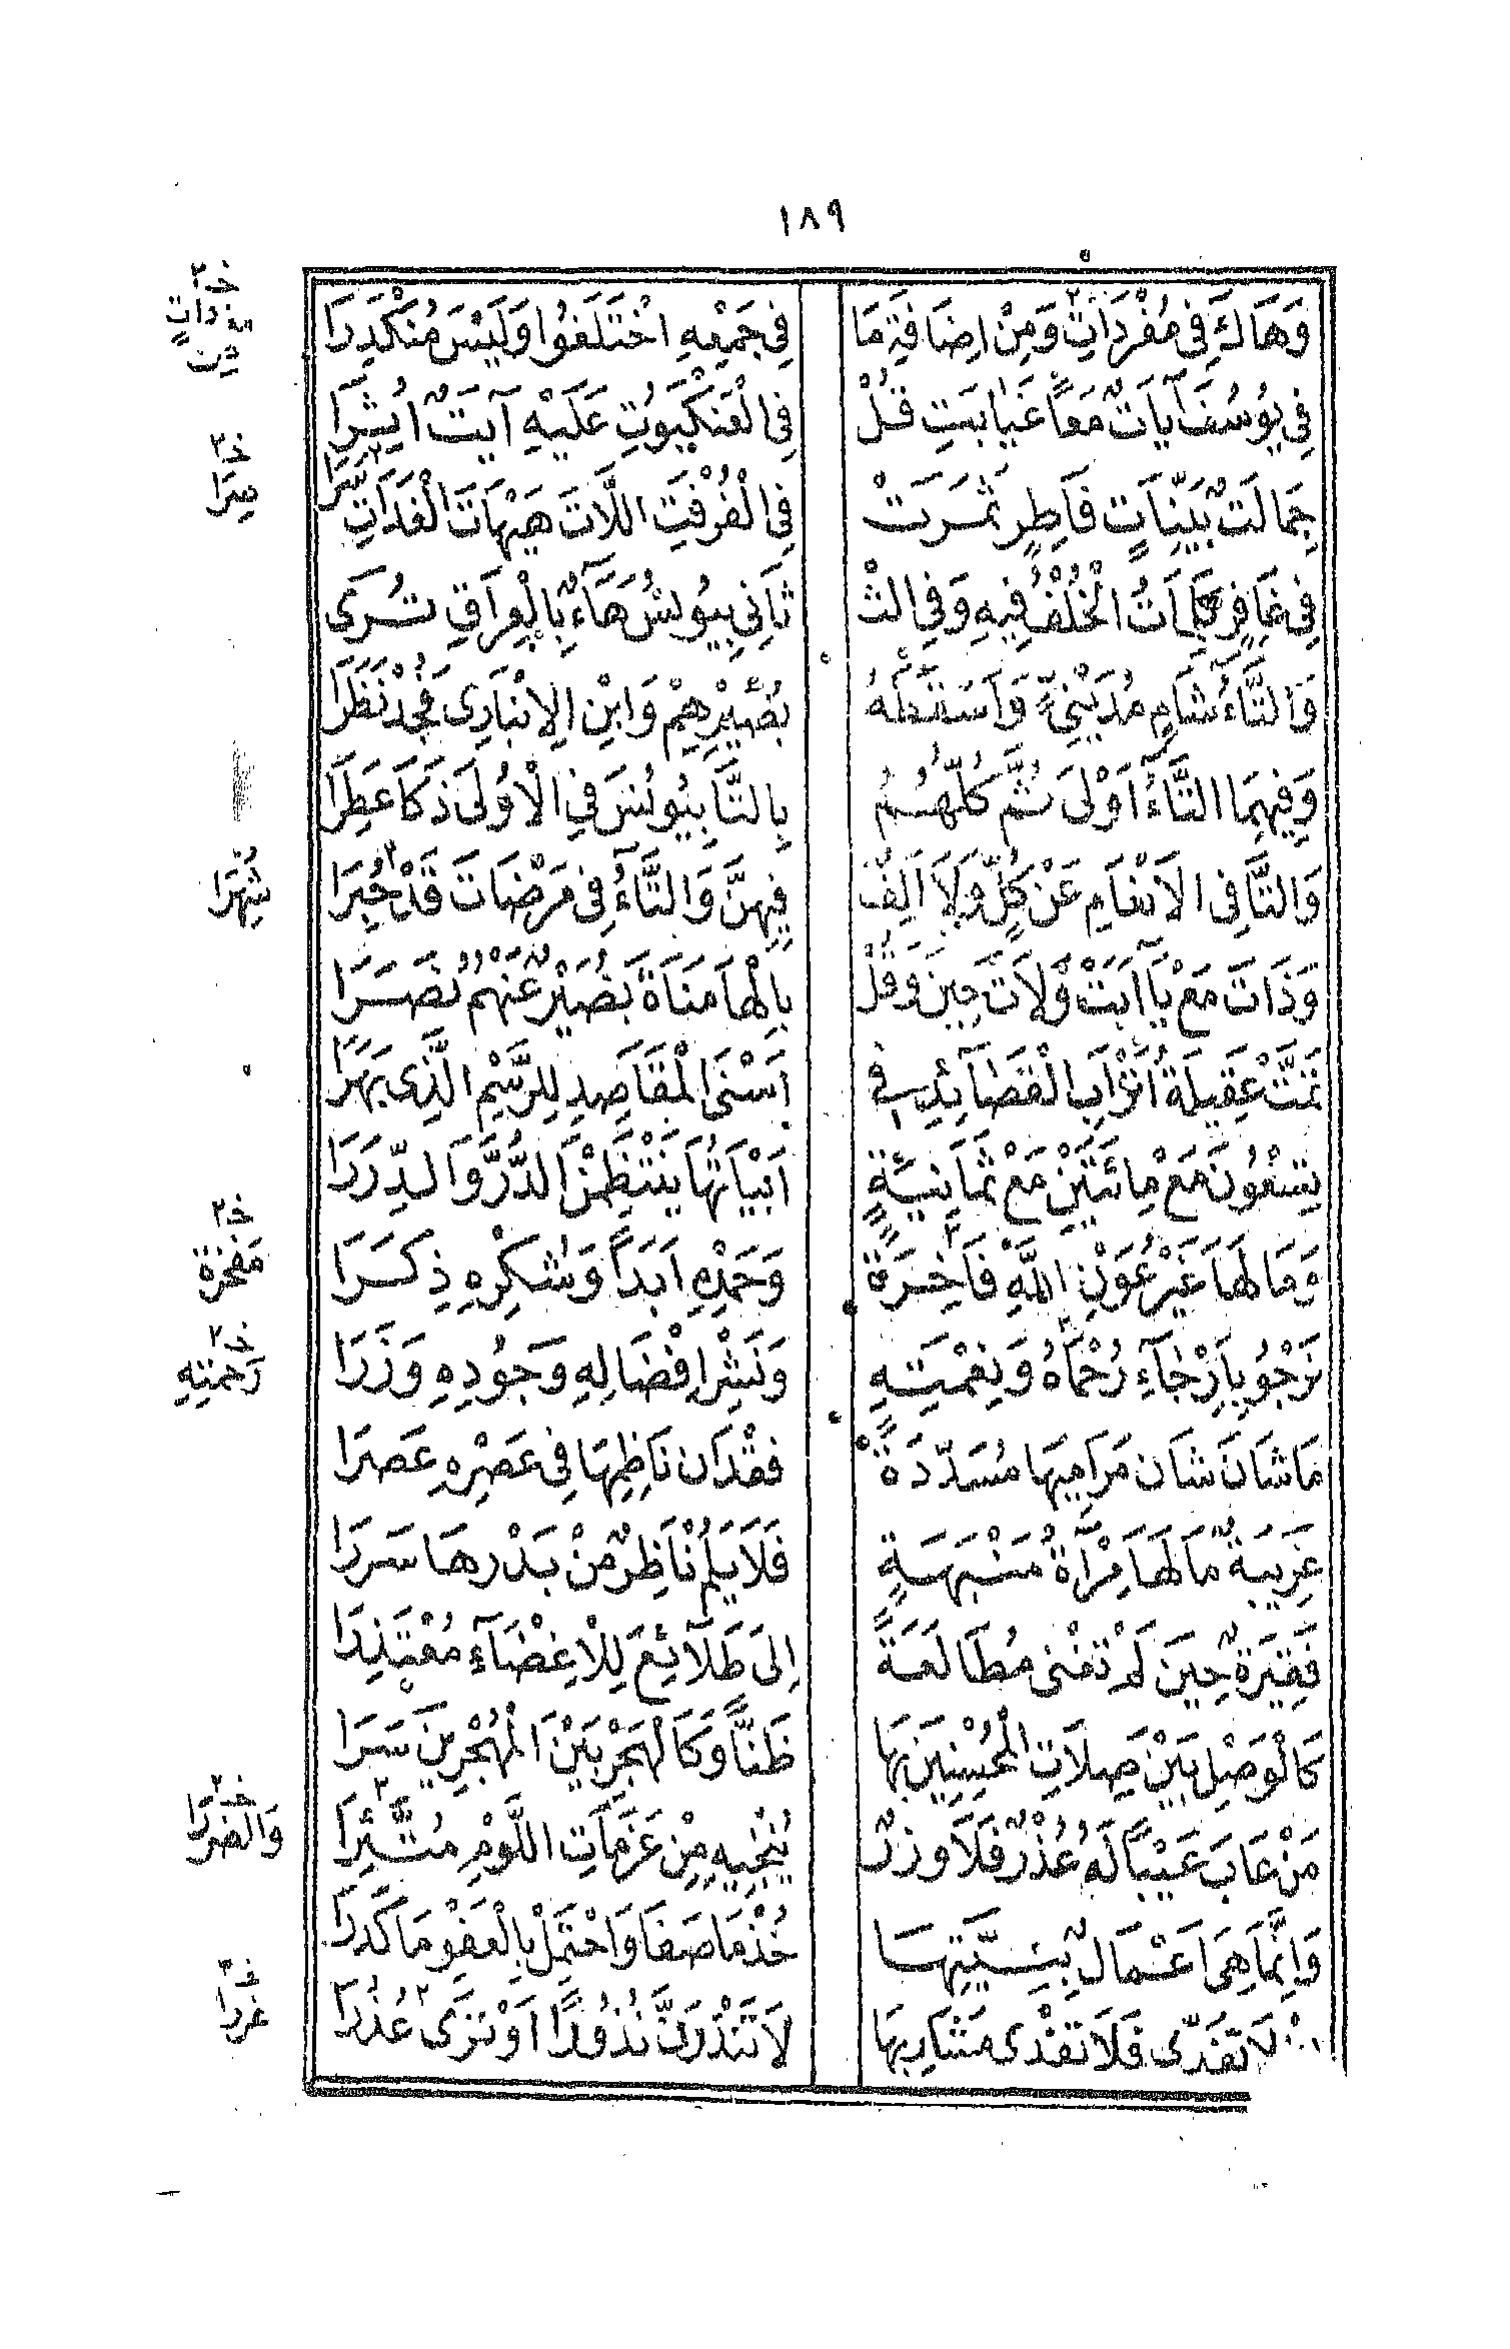 ١٨٩
وَهَاكَ فِي مُفْرَدَاتٍ وَمِنْ إِضَافَةِ مَا فِي جَمْعِهِ اخْتَلَفُوا وَلَيْسَ مُنْكَدِرَا
فِي يُوسُفَ آيَاتٌ مَعًا غَيَابَتِ قُلْ فِي الْعَنْكَبُوتِ عَلَيْهِ آيَتٌ أُثِرَا
جِمَالَتٌ بَيِّنَاتٍ فَاطِرٍ ثَمَرَتْ فِي الْغُرْفَتِ اللَّاتَ هَيْهَاتَ الْعَذَاتِ سَرَا
فِي غَافِرٍ كَلِمَاتُ الْخُلْفُ فِيهِ وَفِي الثْ ثَانِي بِيُونُسَ هَاءٌ بِالْعِرَاقِ تُرَى
وَالتَّاءُ شَامٍ مَدِينِيٍّ وَأَسْقَطَهُ نُصَيْرُهُمْ وَابْنِ الْانْبَارِي فَجُدْ نَظَرَا
وَفِيهِمَا التَّاءُ أَوْلَى ثُمَّ كُلُّهُمُ بِالتَّا بِيُونُسَ فِي الْأُولَى ذَكَا عَطِرَا
وَالتَّا فِي الْأَنْعَامِ عَنْ كُلٍّ وَلَا أَلِفٌ فِيهِنَّ وَالتَّاءُ فِي مَرْضَاتَ قَدْ خُبِرَا
وَذَاتَ مَعْ يَا أَبَتْ وَلَاتَ حِينَ وَقُلْ بِالْهَا مَنَاةَ نُصَيْرٌ عَنْهُمُ نَصَرَا
تَمَّتْ عَقِيلَةُ أَتْرَابِ الْقَصَائِدِ فِي أَسْنَى الْمَقَاصِدِ لِلرَّسْمِ الَّذِي بَهَرَا
تِسْعُونَ مَعْ مِائَتَيْنِ مَعْ ثَمَانِيَةٍ أَبْيَاتُهَا يَنْتَظِمْنَ الدُّرَّ وَالدِّرَرَا
وَمَا لَهَا غَيْرُ عَوْنِ اللَّهِ فَاخِرَةً وَحَمْدِهِ أَبَدًا وَشُكْرِهِ ذِكَرَا
نَرْجُو بِأَرْجَاءِ رُحْمَاهُ وَنِعْمَتِهِ وَنَشْرِ إِفْضَالِهِ وَجُودِهِ وَزَرَا
مَا شَانَ شَانَ مَرَامِيهَا مُسَدَّدَةً فِقْدَانُ نَاظِمِهَا فِي عَصْرِهِ عَصَرَا
غَرِيبَةٌ مَا لَهَا مِرْآةُ مَنْبَهَةٍ فَلَا يَلُمْ نَاظِرٌ مِنْ بَدْرِهَا سَرَرَا
فَقِيرَةٌ حِينَ لَمْ تُغْنِى مُطَالَعَةً إِلَى طَلَائِعَ لِلْإِغْضَاءِ مُعْتَذِرَا
كَالْوَصْلِ بَيْنَ صِلَاتِ الْمُحْسِنِينَ بِهَا ظَنًّا وَكَالْهَجْرِ بَيْنَ الْمُهْجِرِينَ سَرَا
مَنْ عَابَ عَيْبًا لَهُ عُذْرٌ فَلَا وَزَرٌ يُنْجِيهِ مِنْ عَزَمَاتِ اللَّوْمِ مُتَّئِرَا
وَإِنَّمَا هِيَ أَعْمَالٌ بِنِيَّتِهَا خُذْ مَا صَفَا وَاحْتَمِلْ بِالْعَفْوِ مَا كَدَرَا
لَا تَقْذَى فَلَا تَقْذَى مَشَارِبَهَا لَا تَنْذُرَنَّ نُذُورًا أَوْ تَرَى غُدُرَا
خ٢
خ٢
خ٢
مَفْخَرَة
خ٢
رَحْمَتِهِ
خ٢
وَالضَّرَرَا
خ٢
غررا